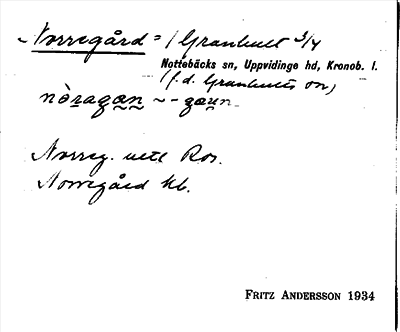 Norregård = / Granhult 3/4
Nottebäcks sn, Uppvidinge hd, Kronob. l.
(f.d. Granhults sn)
nòragạn ~ - gaun
Norreg. uell Ros.
Norregård kb.
FRITZ ANDERSSON 1934